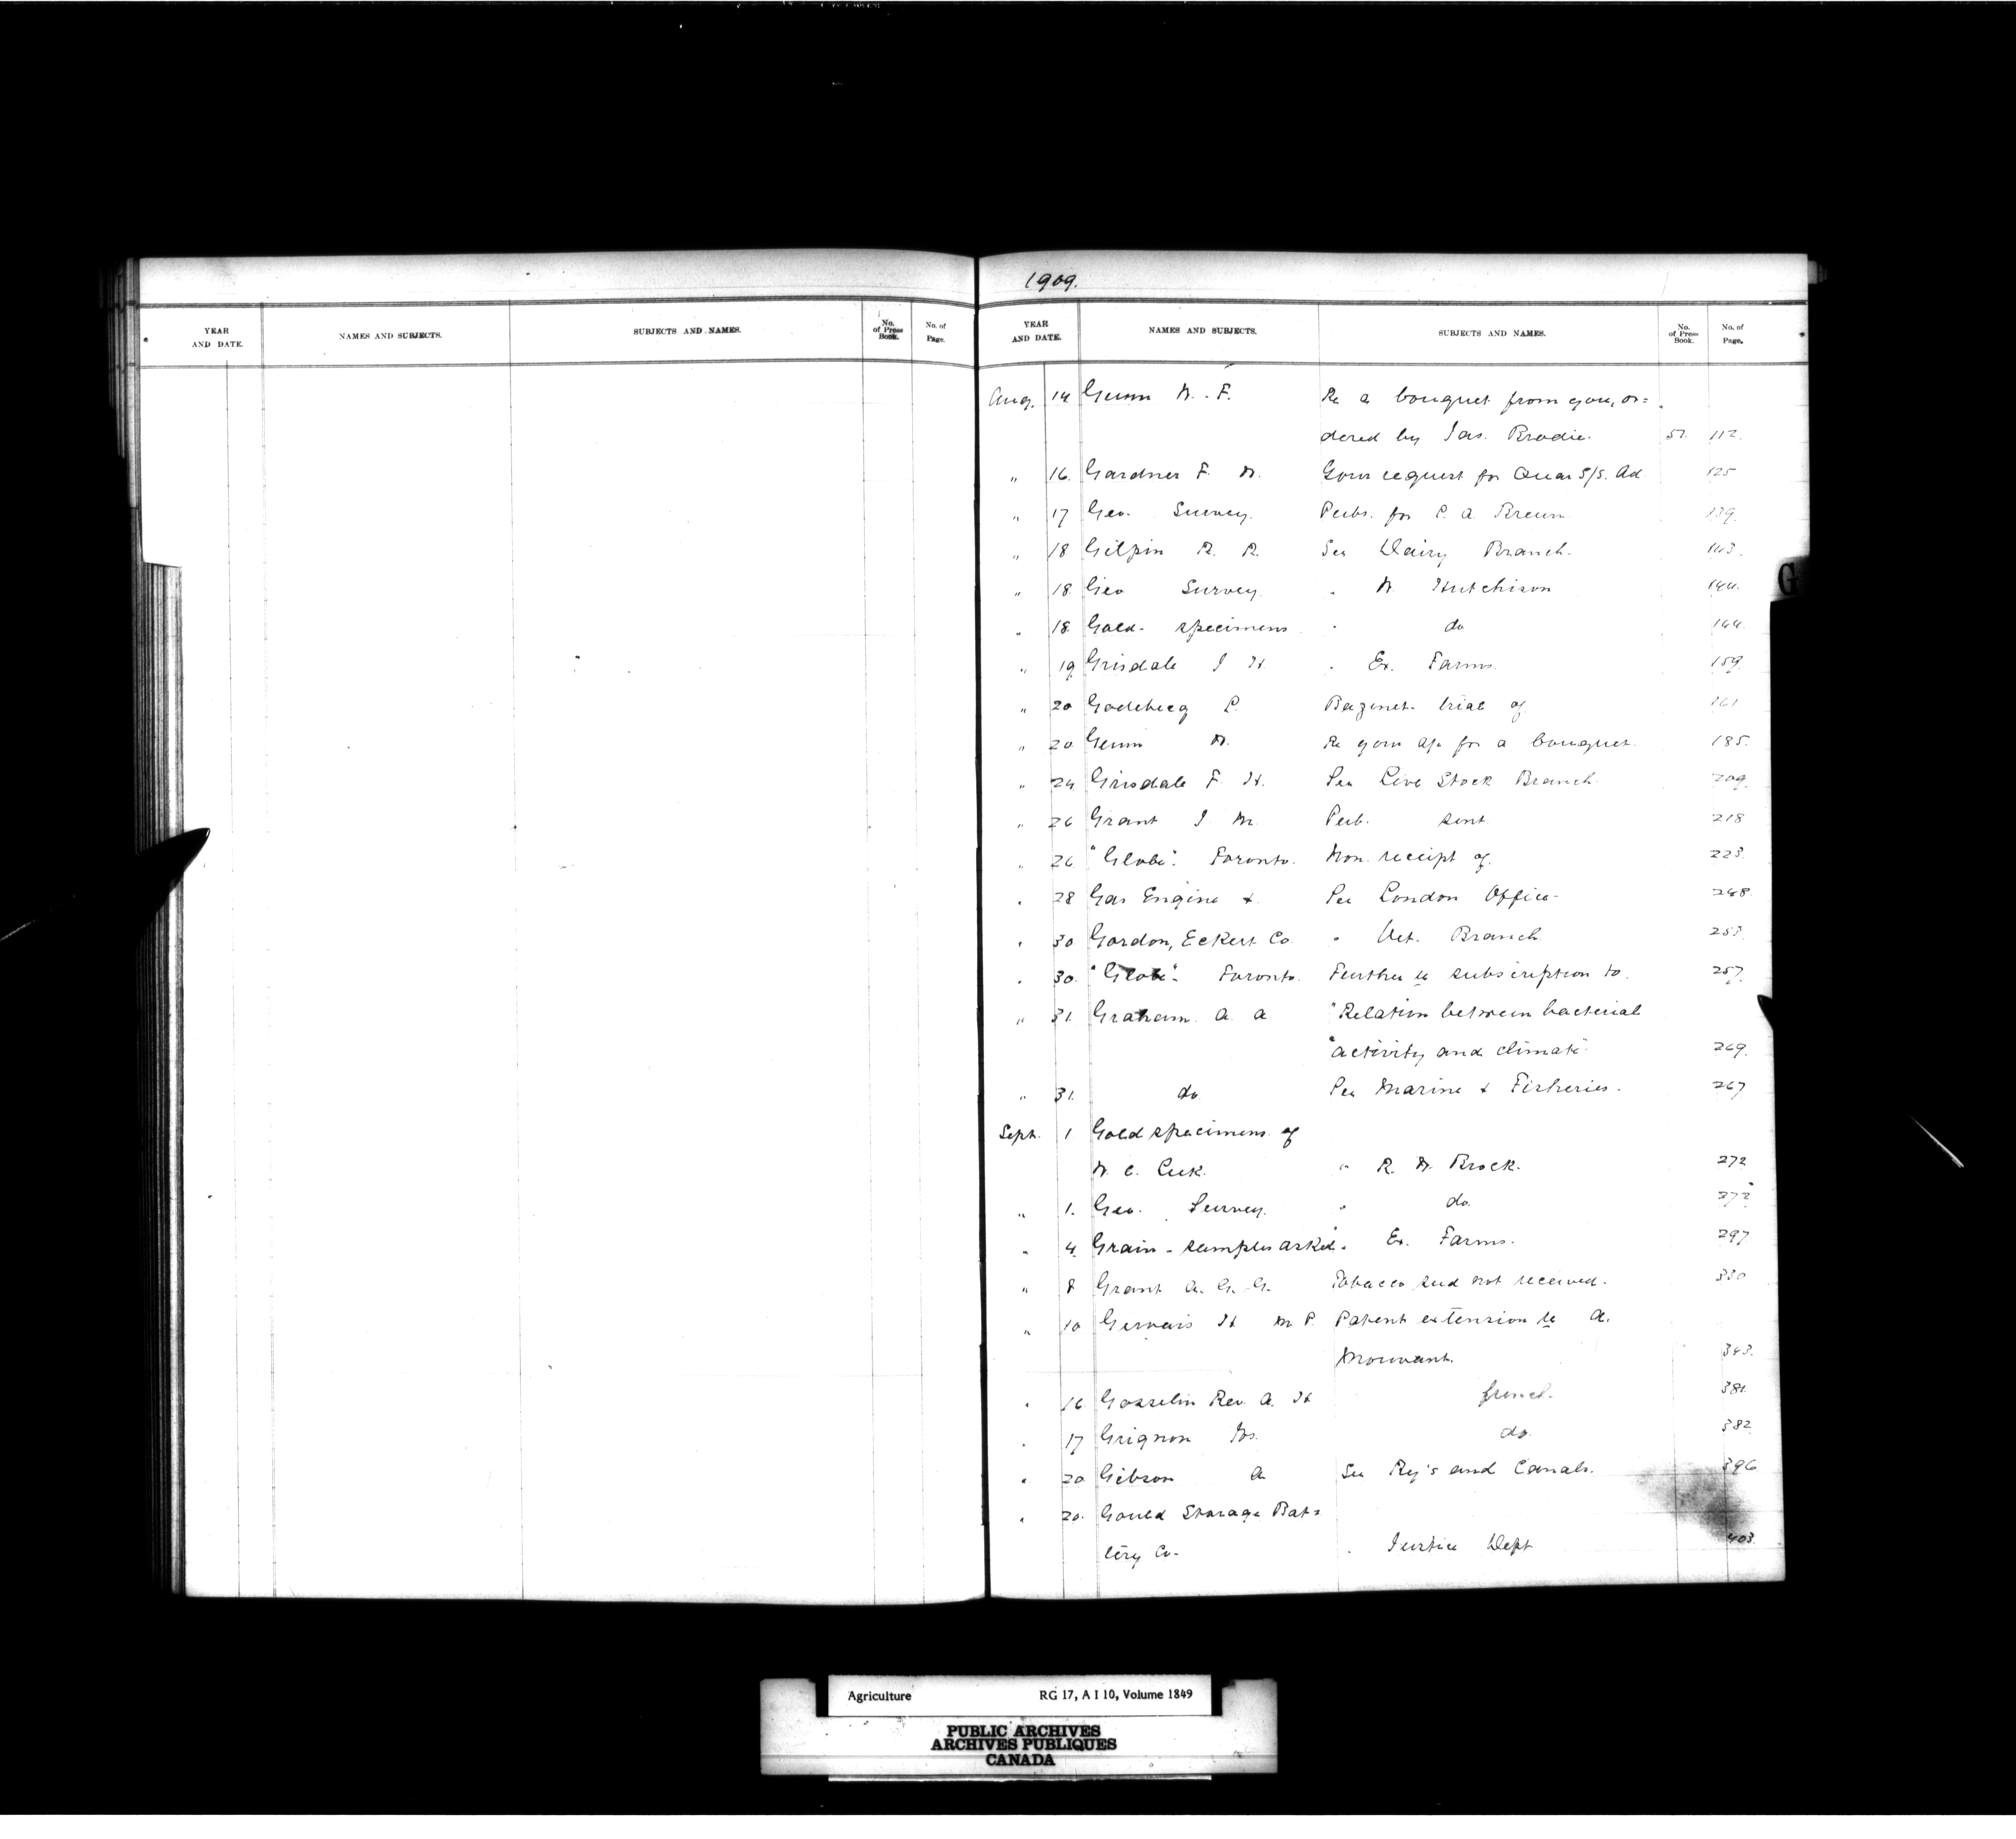 1909.
YEAR AND DATE. NAMES AND SUBJECTS. SUBJECTS AND NAMES. No. of Press Book. No. of Page.
YEAR AND DATE. NAMES AND SUBJECTS. SUBJECTS AND NAMES. No. of Press Book. No. of Page.
Aug. 14 Gunn N. F. Re a bouquet from you, or=
dered by Jas. Brodie. 57. 112.
" 16. Gardner F. W. Your request for Quar S/S. Ad 125
" 17 Geo. Survey. Pubs. for C. A. 139.
" 18 Gilpin R. R. See Dairy Branch. 143.
" 18 Geo Survey. " W Hutchison 144.
" 18. Gold- specimens " do 144
" 19 Grisdale J H " Ex. Farms. 159.
" 20 L. Bazinet- trial of 161
" 20 Gunn N. Re your a/c for a bouquet. 185.
" 24 Grisdale F. H. See Live Stock Branch 209.
" 26 Grant J M Pub. sent 218
" 26 "Globe". Toronto. Non. receipt of. 223.
" 28 Gas Engine & See London Office- 248.
" 30 Gordon, Eckert Co. " Vet. Branch 253.
" 30. "Globe"- Toronto. Further re subscription to. 257.
" 31. Graham A. A "Relation between bacterial
"activity and climate" 269.
" 31. do See Marine & Fisheries. 267
Sept. 1 Gold specimens of
W. C. " R. W. Brock. 272
" 1. Geo. Survey. " do. 272
" 4 Grain - samples asked. " Ex. Farms. 297
" 8 Grant A. G. G. Tobacco seed not received. 330
" 10 Gervais H M. P. Patent extension re A.
343.
" 16. Gosselin Rev. A. H french. 381.
" 17 Grignon do. 382
" 20 Gibson A See Ry's and Canals. 396
" 20. Gould Storage Bat=
tery Co- " Justice Dept 403.
G
Agriculture RG 17, A I 10, Volume 1849
PUBLIC ARCHIVES
ARCHIVES PUBLIQUES
CANADA